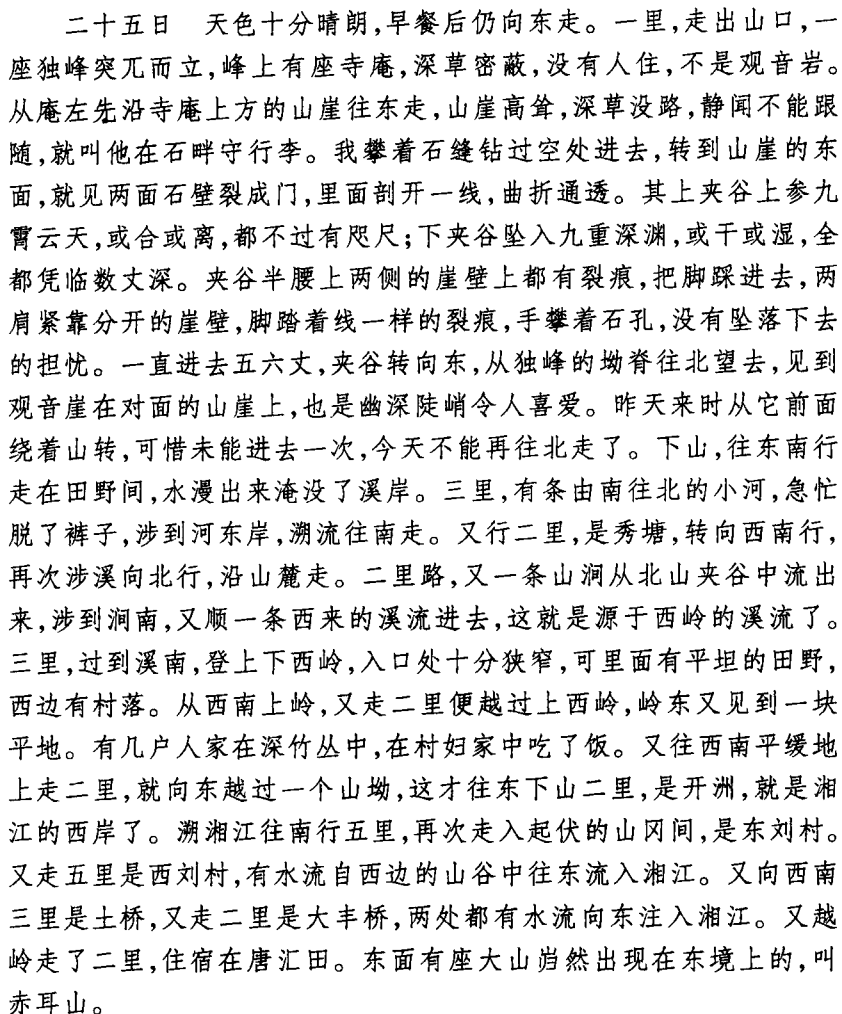 二十五日　天色十分晴朗,早餐后仍向东走。一里,走出山口,一
座独峰突兀而立,峰上有座寺庵,深草密蔽,没有人住,不是观音岩。
从庵左先沿寺庵上方的山崖往东走,山崖高耸,深草没路,静闻不能跟
随,就叫他在石畔守行李。我攀着石缝钻过空处进去,转到山崖的东
面,就见两面石壁裂成门,里面剖开一线,曲折通透。其上夹谷上参九
霄云天,或合或离,都不过有咫尺;下夹谷坠入九重深渊,或干或湿,全
都凭临数丈深。夹谷半腰上两侧的崖壁上都有裂痕,把脚踩进去,两
肩紧靠分开的崖壁,脚踏着线一样的裂痕,手攀着石孔,没有坠落下去
的担忧。一直进去五六丈,夹谷转向东,从独峰的坳脊往北望去,见到
观音崖在对面的山崖上,也是幽深陡峭令人喜爱。昨天来时从它前面
绕着山转,可惜未能进去一次,今天不能再往北走了。下山,往东南行
走在田野间,水漫出来淹没了溪岸。三里,有条由南往北的小河,急忙
脱了裤子,涉到河东岸,溯流往南走。又行二里,是秀塘,转向西南行,
再次涉溪向北行,沿山麓走。二里路,又一条山涧从北山夹谷中流出
来,涉到涧南,又顺一条西来的溪流进去,这就是源于西岭的溪流了。
三里,过到溪南,登上下西岭,入口处十分狭窄,可里面有平坦的田野,
西边有村落。从西南上岭,又走二里便越过上西岭,岭东又见到一块
平地。有几户人家在深竹丛中,在村妇家中吃了饭。又往西南平缓地
上走二里,就向东越过一个山坳,这才往东下山二里,是开洲,就是湘
江的西岸了。溯湘江往南行五里,再次走入起伏的山冈间,是东刘村。
又走五里是西刘村,有水流自西边的山谷中往东流入湘江。又向西南
三里是土桥,又走二里是大丰桥,两处都有水流向东注入湘江。又越
岭走了二里,住宿在唐汇田。东面有座大山岿然出现在东境上的,叫
赤耳山。